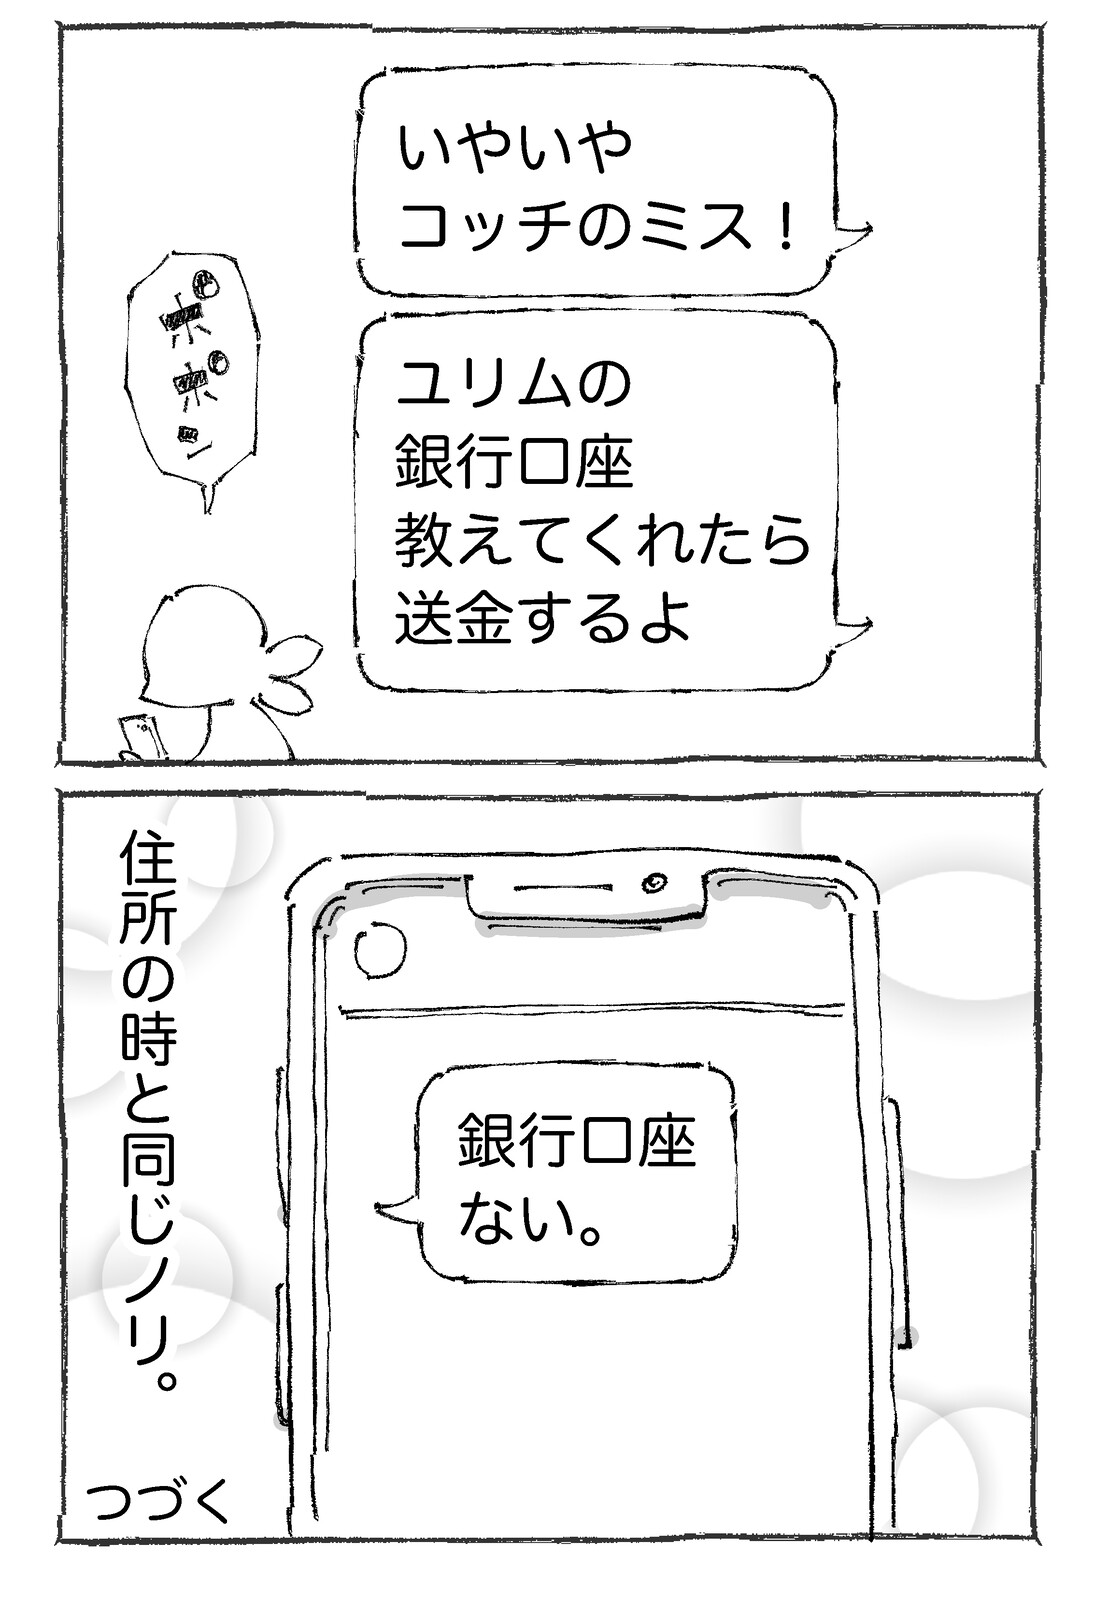 いやいや
コッチのミス！
ポポン
ユリムの
銀行口座
教えてくれたら
送金するよ
住所の時と同じノリ。
銀行口座
ない。
つづく